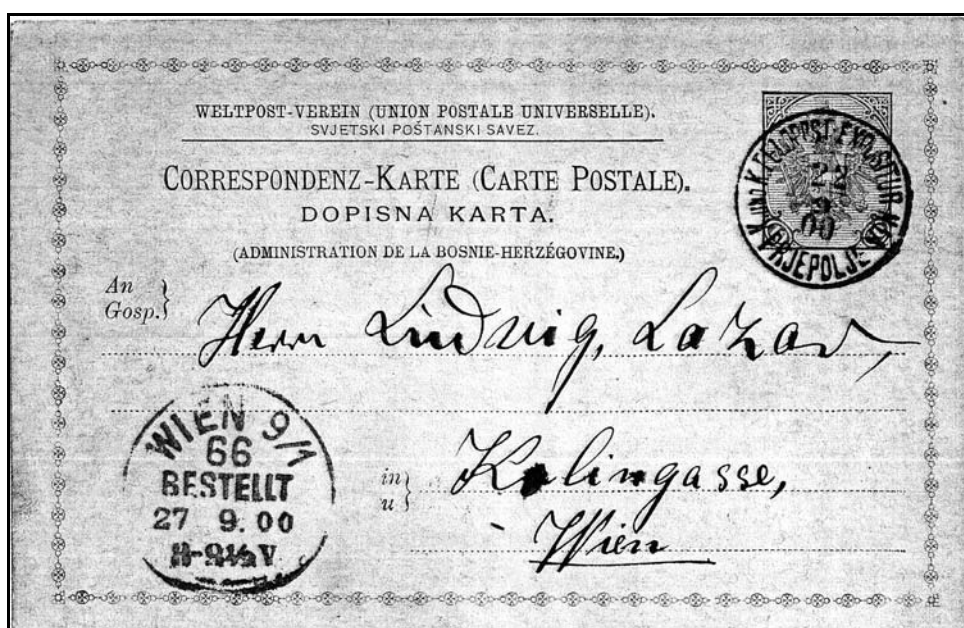 WELTPOST-VEREIN (UNION POSTALE UNIVERSELLE).
SVJETSKI POŠTANSKI SAVEZ.
CORRESPONDENZ-KARTE (CARTE POSTALE).
DOPISNA KARTA.
(ADMINISTRATION DE LA BOSNIE-HERZÉGOVINE.)
K UND K. FELDPOST-EXPOSITUR
22
9
00
PRJEPOLJE
An
Gosp.}
Herrn Ludwig, Lazar,
WIEN 9/1
66
BESTELLT
27 9. 00
8-9½ V
in
u }
Kolingasse,
Wien